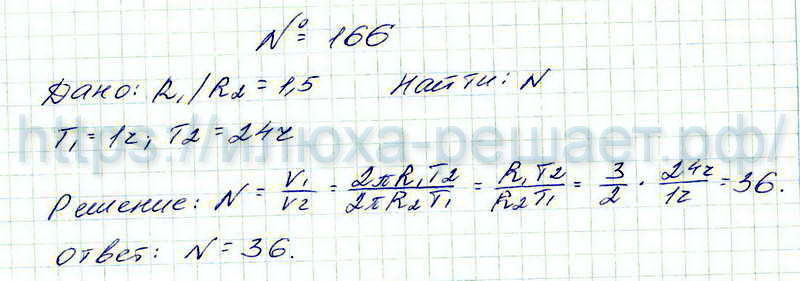 № 166
Дано: R₁/R₂ = 1,5 Найти: N
T₁ = 1ч; T2 = 24ч
https://илюха-решает.рф/
Решение: N = V₁/V2 = 2πR₁T2/2πR₂T₁ = R₁T2/R₂T₁ = 3/2 · 24ч/1ч = 36.
Ответ: N = 36.